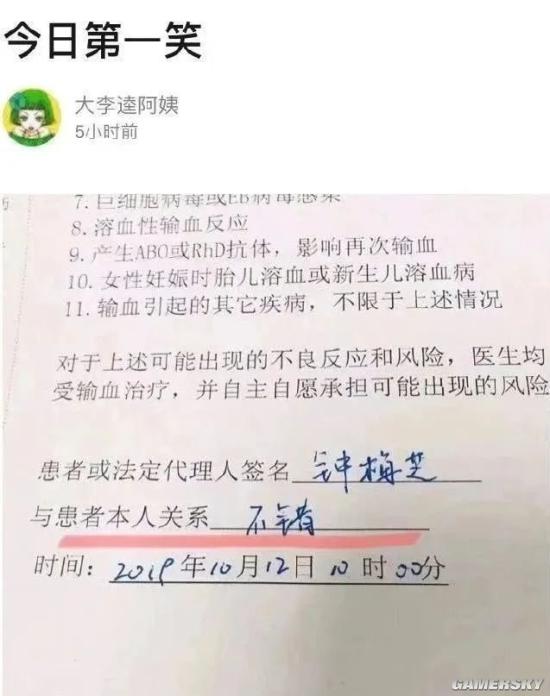 今日第一笑
大李逵阿姨
5小时前
7. 巨细胞病毒或EB病毒感染
8. 溶血性输血反应
9. 产生ABO或RhD抗体，影响再次输血
10. 女性妊娠时胎儿溶血或新生儿溶血病
11. 输血引起的其它疾病，不限于上述情况
对于上述可能出现的不良反应和风险，医生均
受输血治疗，并自主自愿承担可能出现的风险
患者或法定代理人签名 钟梅芝
与患者本人关系 不错
时间：2019年10月12日10时00分
GAMERSKY